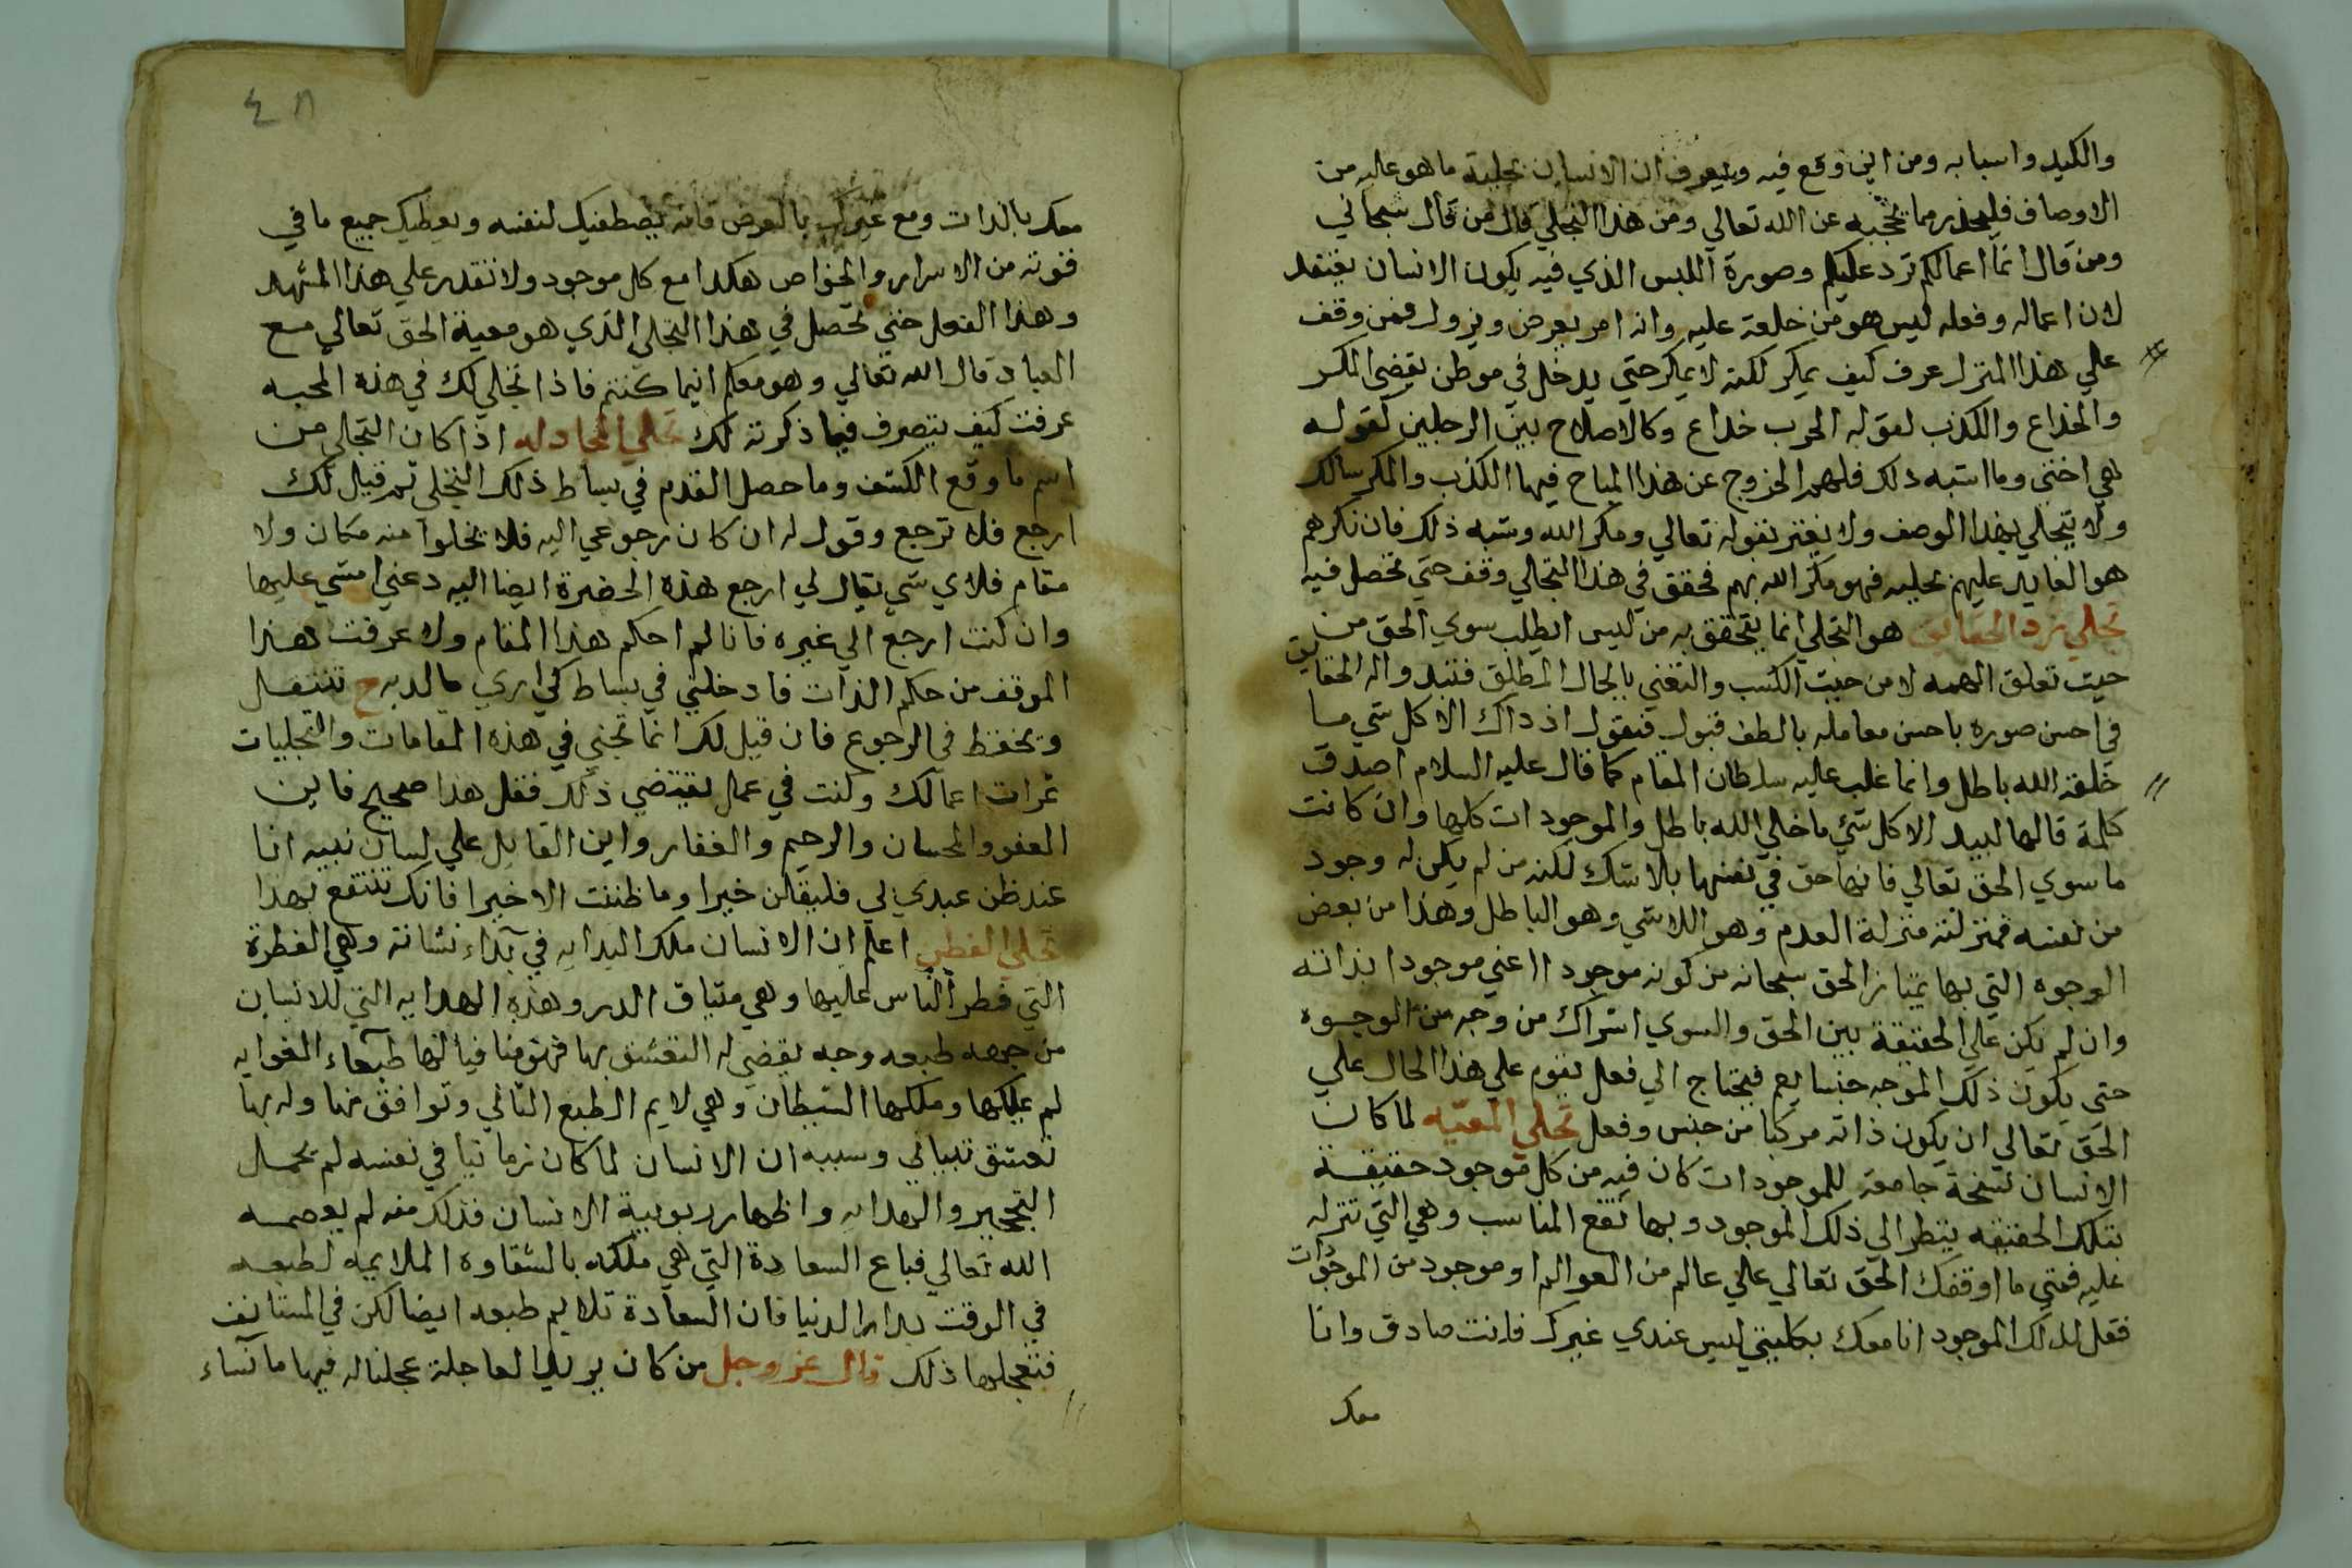 والكيد واسبابه ومن اين وقع فيه ويعرف ان الانسان بحليته ما هو عليه من
الاوصاف فليحذر مما يحجبه عن الله تعالي ومن هذا التجلي قال من قال سبحاني
ومن قال انما اعمالكم ترد عليكم وصورة اللبس الذي فيه يكون الانسان يعتقد
لان اعماله وفعله ليس هو من خلعة عليه وانه امر يعرض ويزول فمن وقف
علي هذا المنزل عرف كيف يمكر لكنه لا يمكر حتي يدخل في موطن يقضي المكر
والخداع والكذب لقوله الحرب خداع وكالاصلاح بين الرجلين لقوله
هي اختي وما اشبه ذلك فلهم الخروج عن هذا المباح فيها الكذب والمكر سالك
ولا يتجلي بهذا الوصف ولا يغتر بقوله تعالي ومكر الله وشبه ذلك فان نكرهم
هو العايد عليهم بحليه فهو مكر الله بهم فحقق في هذا التجلي وقف حتي تحصل فيه
تجلي رد الحقايق هو التجلي انما يتحقق به من ليس الطلب سوي الحق من
حيث تعلق الهمه لا من حيث الكسب والتغني بالجال المطلق فتبدو اله الحقايق
في احسن صوره باحسن معامله بالطف قبول فيقول اذ ذاك الا كل شي ما
خلقه الله باطل وانما غلب عليه سلطان المقام كما قال عليه السلام اصدق
كلمة قالها لبيد الا كل شي ما خلي الله باطل والموجودات كلها وان كانت
ما سوي الحق تعالي فانها حق في نفسها بلا شك لكنه من لم يكن له وجود
من نفسه فمنزلته منزلة العدم وهو اللاشي وهو الباطل وهذا من بعض
الوجوه التي بها يمتاز الحق سبحانه من كونه موجود ااعني موجودا بذاته
وان لم يكن علي الحقيقة بين الحق والسوي اشراك من وجه من الوجوه
حتي يكون ذلك الموجه جنسا يعم فيحتاج الي فعل يقوم علي هذا الحال علي
الحق تعالي ان يكون ذاته مركبا من جنس وفعل تجلي المعيه لما كان
الانسان نسخة جامعة للموجودات كان فيه من كل موجود حقيقة
بتلك الحقيقه ينظر الي ذلك الموجود وبها تقع المناسب وهي التي تنزله
عليه فمتي ما اوقفك الحق تعالي علي عالم من العوالم او موجود من الموجودات
فقل لذلك الموجود انا معك بكليتي ليس عندي غيرك فانت صادق وانا
معك
٤٨
معك بالذات ومع غيرك بالعرض فانه يصطفيك لنفسه ويعطيك جميع ما في
قوته من الاسرار والخواص هكذا مع كل موجود ولا تقدر علي هذا المشهد
وهذا الفعل حتي تحصل في هذا التجلي الذي هو معية الحق تعالي مع
العباد قال الله تعالي وهو معكم اينما كنتم فاذا تجلي لك في هذه المحبه
عرفت كيف يتصرف فيما ذكرته لك تجلي المجادله اذا كان التجلي من
اسم ما وقع الكشف وما حصل القدم في بساط ذلك التجلي ثم قيل لك
ارجع فلا ترجع وقول له ان كان رجوعي اليه فلا يخلوا منه مكان ولا
مقام فلاي شي يقال لي ارجع هذه الحضرة ايضا اليه دعني امشي عليها
وان كنت ارجع الي غيره فانا لم احكم هذا المقام ولا عرفت هذا
الموقف من حكم الذات فادخلني في بساط كي اري ما لديه ح تنتقل
وتحفظ في الرجوع فان قيل لك انما تجني في هذه المقامات والتجليات
ثمرات اعمالك وكنت في عمل يقتضي ذلك فقل هذا صحيح فاين
العفو والمحسان والرحيم والغفار واين القايل علي لسان نبيه انا
عند ظن عبدي لي فليقلن خيرا وما ظننت الا خيرا فانك تنتفع بهذا
تجلي الفطره اعلم ان الانسان ملك البدايه في بداء نشاته وهي الفطرة
التي فطر الناس عليها وهي ميثاق الدر وهذه الهدايه التي للانسان
من جهه طبعه وجه يقضي له التعشق بها فهو منافيا لها طبعاء الغوايه
لم يملكها وملكها الشيطان وهي لايم الطبع الثاني وتوافق منها وله بها
تعشق نبياني وسببه ان الانسان لما كان زمانيا في نفسه لم يحمل
التحجير والهدايه واظهار ربوبية الانسان فذلك منه لم يعصمه
الله تعالي فباع السعادة التي هي ملكه بالشقاوه الملايمه لطبعه
في الوقت بدار الدنيا فان السعادة تلايم طبعه ايضا لكن في المستانف
فتعجلها ذلك قال عز وجل من كان يريد العاجلة عجلنا له فيها ما نشاء